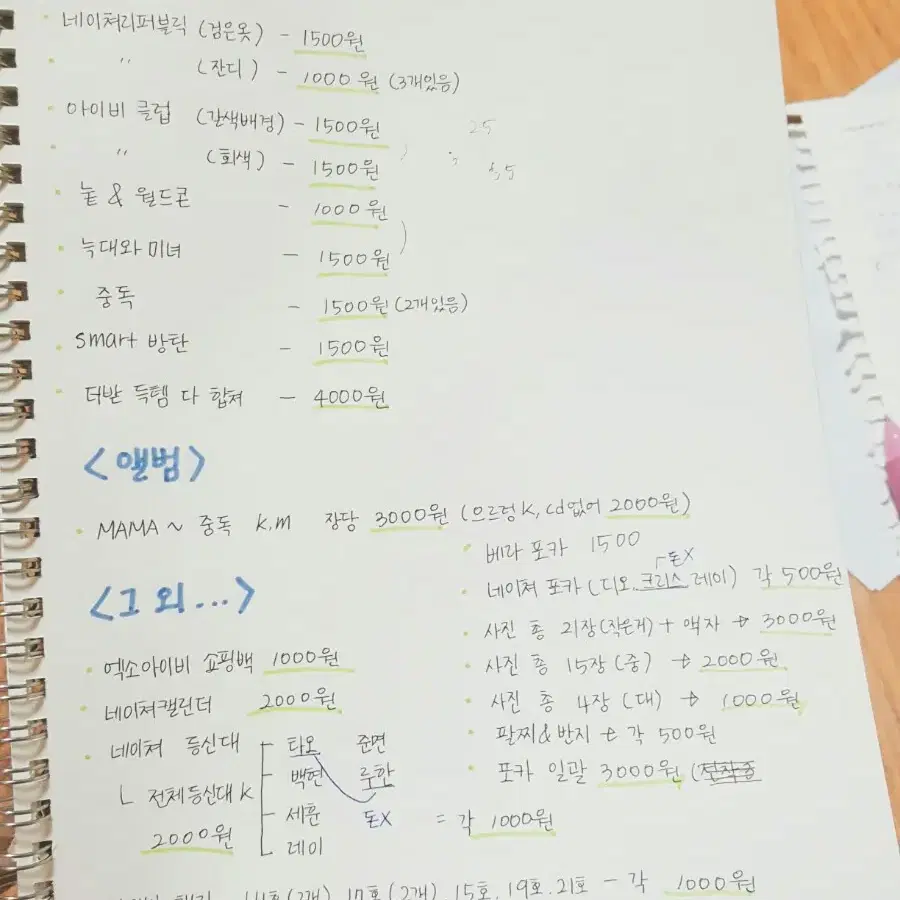 네이쳐리퍼블릭 (검은옷) - 1500원
〃 (잔디) - 1000원 (3개있음)
아이비 클럽 (갈색배경) - 1500원
〃 (회색) - 1500원
늪 & 월드콘 - 1000원
늑대와 미녀 - 1500원
중독 - 1500원 (2개있음)
smart 방탄 - 1500원
더반 득템 다 합쳐 - 4000원
<앨범>
MAMA ~ 중독 K.M 장당 3000원 (으르렁 K, cd없어 2000원)
<그 외...>
엑소아이비 쇼핑백 1000원
네이쳐캘린더 2000원
네이쳐 등신대
타오 준면
백현 루한
세훈 돈X
레이
= 각 1000원
ㄴ 전체등신대 K
2000원
베라 포카 1500
돈X
네이쳐 포카 (디오, 크리스, 레이) 각 500원
사진 총 21장(작은거) + 액자 → 3000원
사진 총 15장 (중) → 2000원
사진 총 4장 (대) → 1000원
팔찌&반지 → 각 500원
포카 일괄 3000원
14호(2개) 17호(2개) 15호, 19호, 21호 - 각 1000원